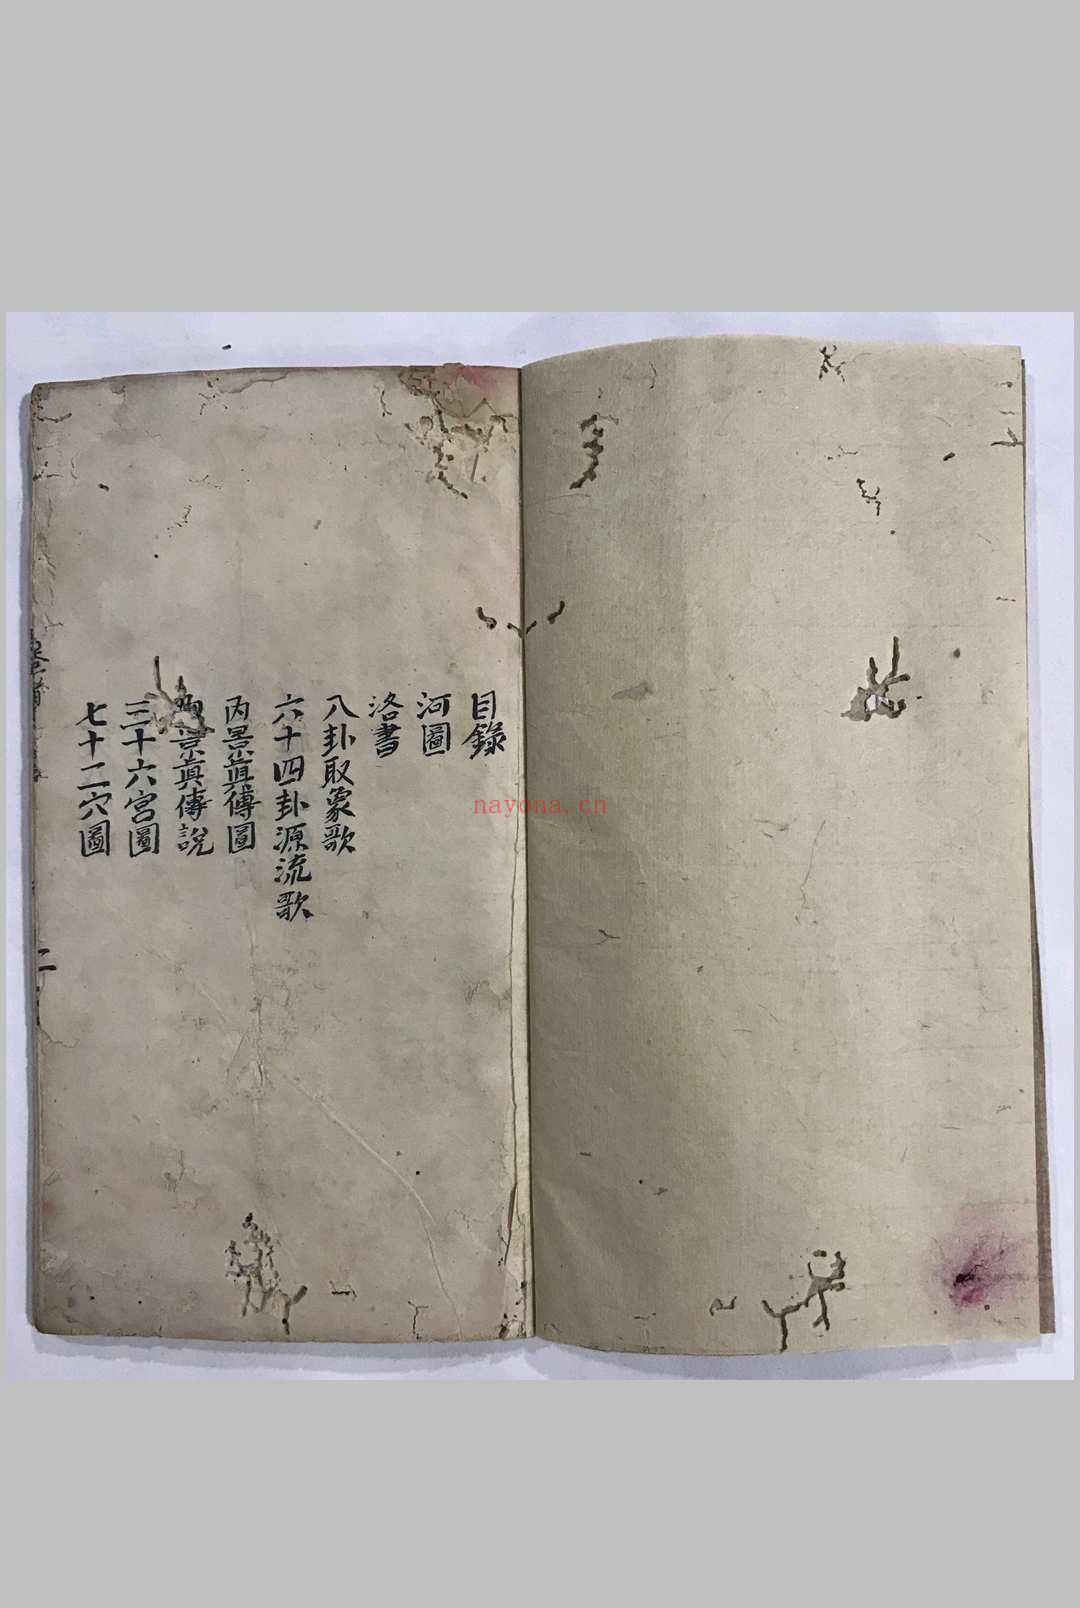 目錄
河圖
洛書
八卦取象歌
六十四卦源流歌
內景眞傳圖
景眞傳說
三十六宮圖
七十二穴圖
二
nayona.cn